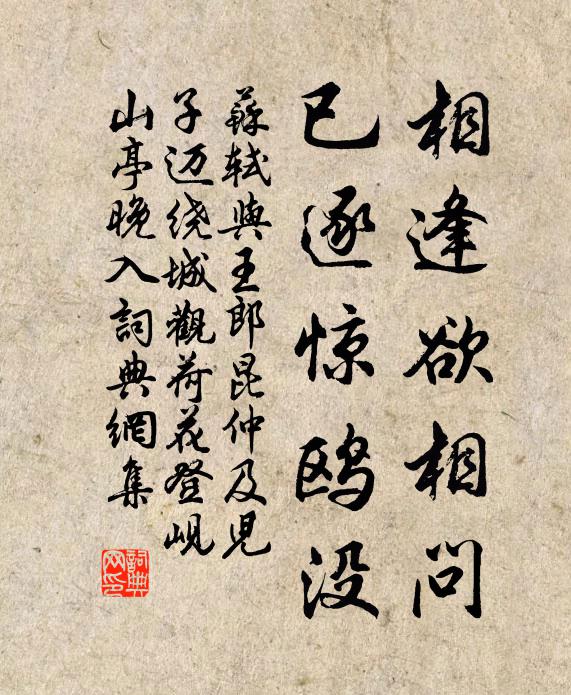 相逢欲相问
已逐惊鸥没
蘇轼與王郎昆仲及児
子迈绕城觀荷花登岘
山亭晚入詞典網集
詞典网印